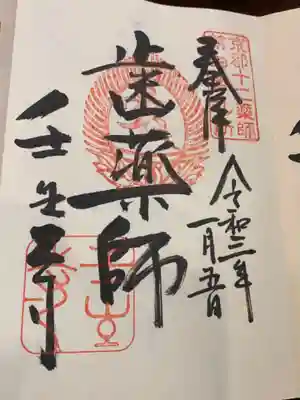 奉拝
令和三年
一月五日
歯薬師
壬生寺
京都十二薬師